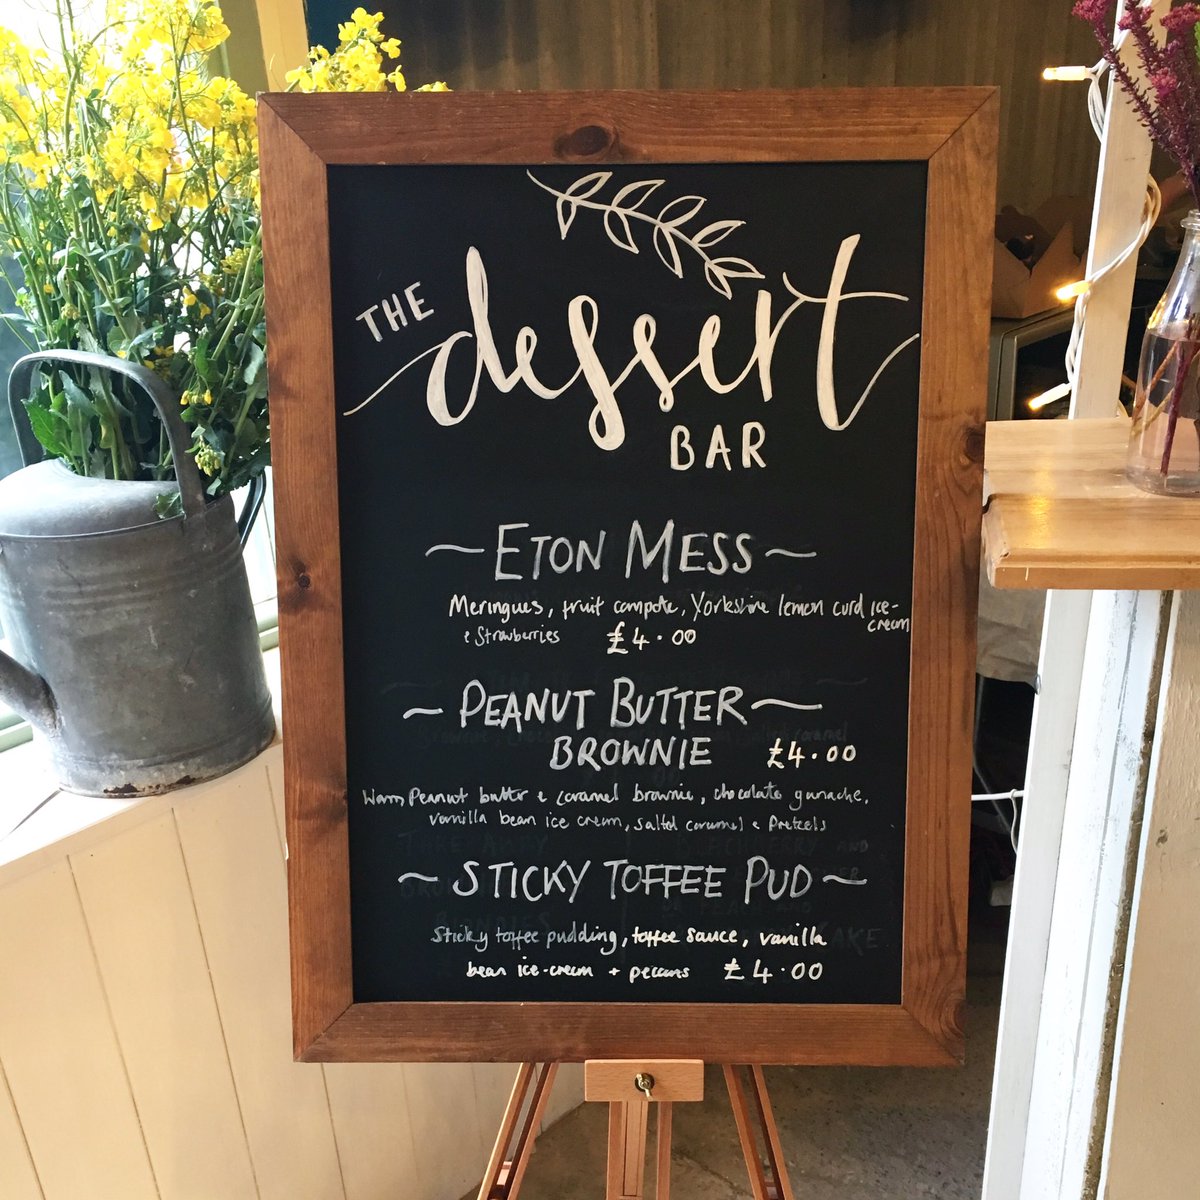 THE
dessert
BAR
~ ETON MESS ~
Meringues, fruit compote, Yorkshire lemon curd ice-
cream
& Strawberries £4.00
~ PEANUT BUTTER ~
BROWNIE £4.00
Warm Peanut butter & caramel brownie, chocolate ganache,
vanilla bean ice cream, salted caramel & Pretzels
~ STICKY TOFFEE PUD ~
Sticky toffee pudding, toffee sauce, vanilla
bean ice-cream + pecans £4.00